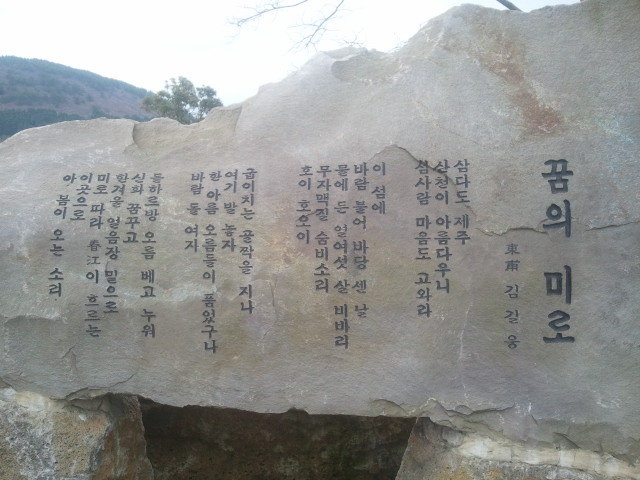 꿈의 미로
東甫 김길웅
삼다도 제주
산천이 아름다우니
섬사람 마음도 고와라
이 섬에
바람 불어 바당 센 날
물에 든 열여섯 살 비바리
무자맥질 숨비소리
호이 호오이
굽이치는 골짝을 지나
여기 발 놓자
한 아름 오름들이 품었구나
바람 돌 여자
돌하르방 오름 베고 누워
실화 꿈꾸고
한겨울 얼음장 밑으로
미로 따라 春江이 흐르는
이곳으로
아 봄이 오는 소리